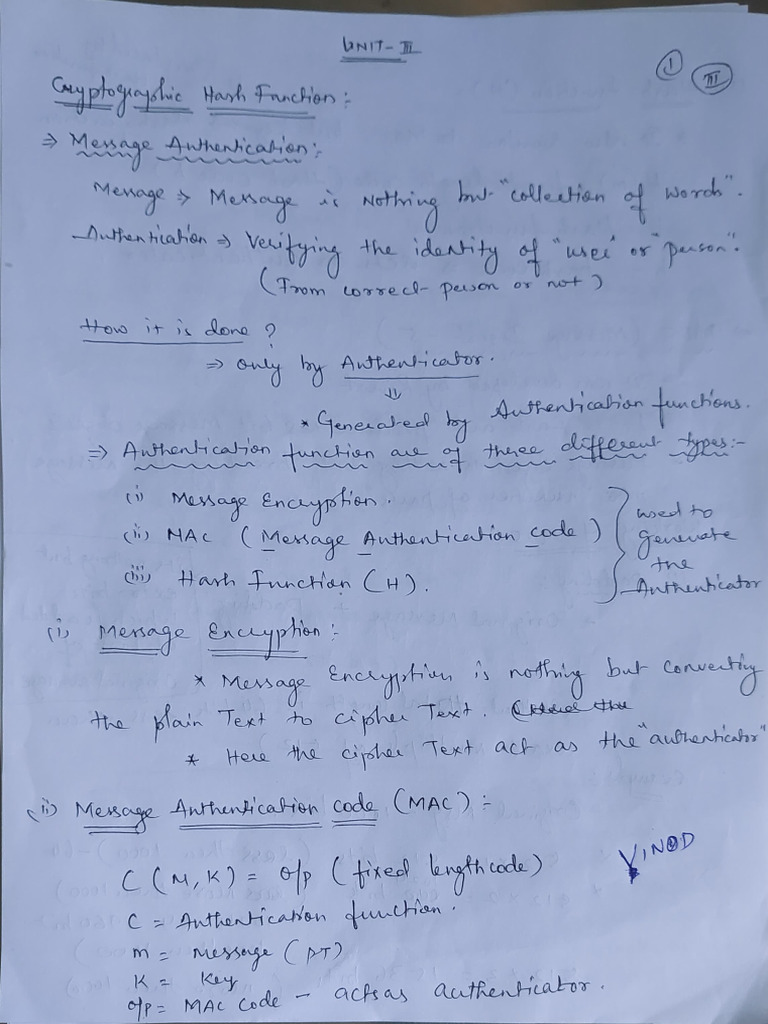 UNIT-III
1
III
Cryptographic Hash Function:-
⇒ Message Authentication:-
Message ⇒ Message is Nothing but "collection of words".
Authentication ⇒ Verifying the identity of "user" or "person".
(From correct person or not)
How it is done?
⇒ only by Authenticator.
⇓
* Generated by Authentication functions.
⇒ Authentication function are of three different types:-
(i) Message Encryption.
(ii) MAC (Message Authentication code)
(iii) Hash Function (H).
used to
generate
the
Authenticator
(i) Message Encryption:-
* Message Encryption is nothing but converting
the plain Text to cipher Text.
* Here the cipher Text act as the "authenticator"
(ii) Message Authentication code (MAC):-
C (M, K) = o/p (fixed length code)
VINOD
C = Authentication function.
m = Message (PT)
K = Key
o/p = MAC code - acts as authenticator.